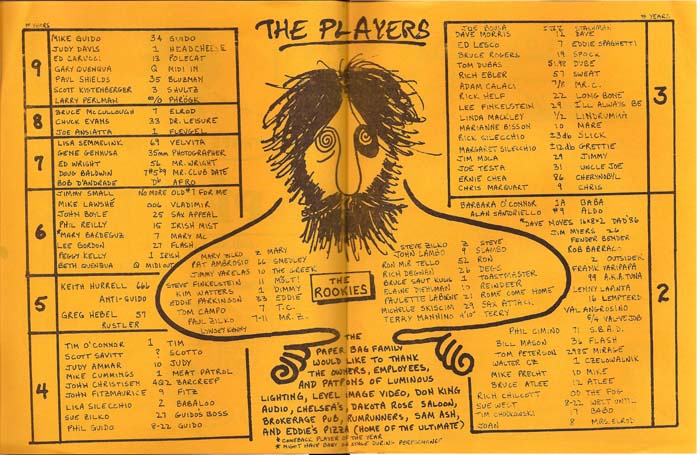 THE PLAYERS
# YEARS
9
MIKE GUIDO 34 GUIDO
JUDY DAVIS 1 HEADCHEESE
ED CARUCCI 13 POLECAT
GARY QUENQUA Q MIDI IN
PAUL SHIELDS 35 BLUZMAN
SCOTT KISTENBERGER 3 SHULTZ
LARRY PERLMAN PHROGK
8
BRUCE McCULLOUGH 7 ELROD
CHUCK EVANS 33 DR. LEISURE
JOE ANSIATTA 1 FLEUGEL
7
LISA SEMMELINK 69 VELVITA
GENE GENHUSA 35mm PHOTOGRAPHER
ED WRIGHT 56 MR. WRIGHT
DOUG BALDWIN MR. CLUB DATE
BOB D'ANDRADE AFRO
6
JIMMY SMALL NO MORE OLD #7 FOR ME
MIKE LAWSHÉ 006 VLADIMIR
JOHN BOYLE 25 SAX APPEAL
PHIL REILLY 15 IRISH MIST
*MARY BARDEGUZ 7 MARY MC
LEE GORDON 27 FLASH
PEGGY KELLY 1 IRISH
BETH QUENQUA Q MIDI OUT
5
KEITH HURRELL 666
ANTI-GUIDO
GREG HEBEL 57
RUSTLER
4
TIM O'CONNOR 1 TIM
SCOTT SAVITT ? SCOTTO
JUDY AMMAR 10 JUDY
MIKE CUMMINGS 1 MEAT PATROL
JOHN CHRISTISEN 4Q2 BARCREEP
JOHN FITZMAURICE 9 FITZ
LISA SILECCHIO 2 BABALOO
SUE ZILKO 27 GUIDO'S BOSS
PHIL GUIDO 8-22 GUIDO
THE ROOKIES
MARY ZILKO 2 MARY
PAT AMBROSIO 66 SMEDLEY
JIMMY VARELAS 10 THE GREEK
STEVE FINKELSTEIN 11 MOLT!
KIM WATTERS 1 DIMMY
EDDIE PARKINSON 33 EDDIE
TOM CAMPO 7 T.C.
PAUL ZILKO 7-11 MR. Z.
LYNSEY KENNY
STEVE ZILKO 2 STEVE
JOHN LAMBO 9 SLAMBO
RON MR. TELLO 52 RON
RICH DEGNAN 26 DEGS
BRUCE SAUT KULG 1 TOASTMASTER
ELAINE DIEHLMAN 10 REINDEER
PAULETTE LABIENT 21 ROME COME HOME
MICHELLE SKISCIM 29 SAX ATTACK
TERRY MANNINO 4'10" TERRY
THE
PAPER BAG FAMILY
WOULD LIKE TO THANK
THE OWNERS, EMPLOYEES,
AND PATRONS OF LUMINOUS
LIGHTING, LEVEL IMAGE VIDEO, DON KING
AUDIO, CHELSEA'S, DAKOTA ROSE SALOON,
BROKERAGE PUB, RUMRUNNERS, SAM ASH,
AND EDDIE'S PIZZA (HOME OF THE ULTIMATE)
* COMEBACK PLAYER OF THE YEAR
* MIGHT HAVE BABY ON STAGE DURING PERFORMANCE
# YEARS
3
JOE BOVIA STICKMAN
DAVE MORRIS 12 DAVE
ED LESCO 7 EDDIE SPAGHETTI
BRUCE ROGERS 19 SPOCK
TOM DUBAS 5:98 DUBE
RICH EBLER 57 SWEAT
ADAM CALACI 7/8 MR. C.
RICK HELF 22 LONG BONE
LEE FINKELSTEIN 29 I'LL ALWAYS BE
LINDA MACKLEY 1/2 LINDRUMM
MARIANNE BISSON 10 MARE
RICK SILECCHIO 23db SLICK
MARGARET SILECCHIO GRETTIE
JIM MOLA 29 JIMMY
JOE TESTA 31 UNCLE JOE
ERNIE CHEA 86 CHERYNOBYL
CHRIS MARQUART 9 CHRIS
2
BARBARA O'CONNOR 1A BABA
ALAN SANDRIELLO #9 ALDO
*DAVE MOVES 16x8x2 DAD '86
JIM MYERS 26
FENDER BENDER
ROB BARRACO
2 OUTSIDER
FRANK VARIPAPA
99 A.K.A. TONA
LENNY LAPINTA
16 LEMPTERD
VAL ANGROSINO
5/4 VAL-VE JOB
PHIL CIMINO 71 S.B.A.D.
BILL MASON 36 FLASH
TOM PETERSON 2985 MIRAGE
WALTER CZ 1 CZELOWALNIK
MIKE PRECHT 10 MIKE
BRUCE ATLEE 12 ATLEE
RICH CHILCOTT 00 THE FOG
SUE WELT 8-22 WELT UNTIL
TIM CHOLKOWSKI 17 BABO
JOAN 8 MRS. ELROD